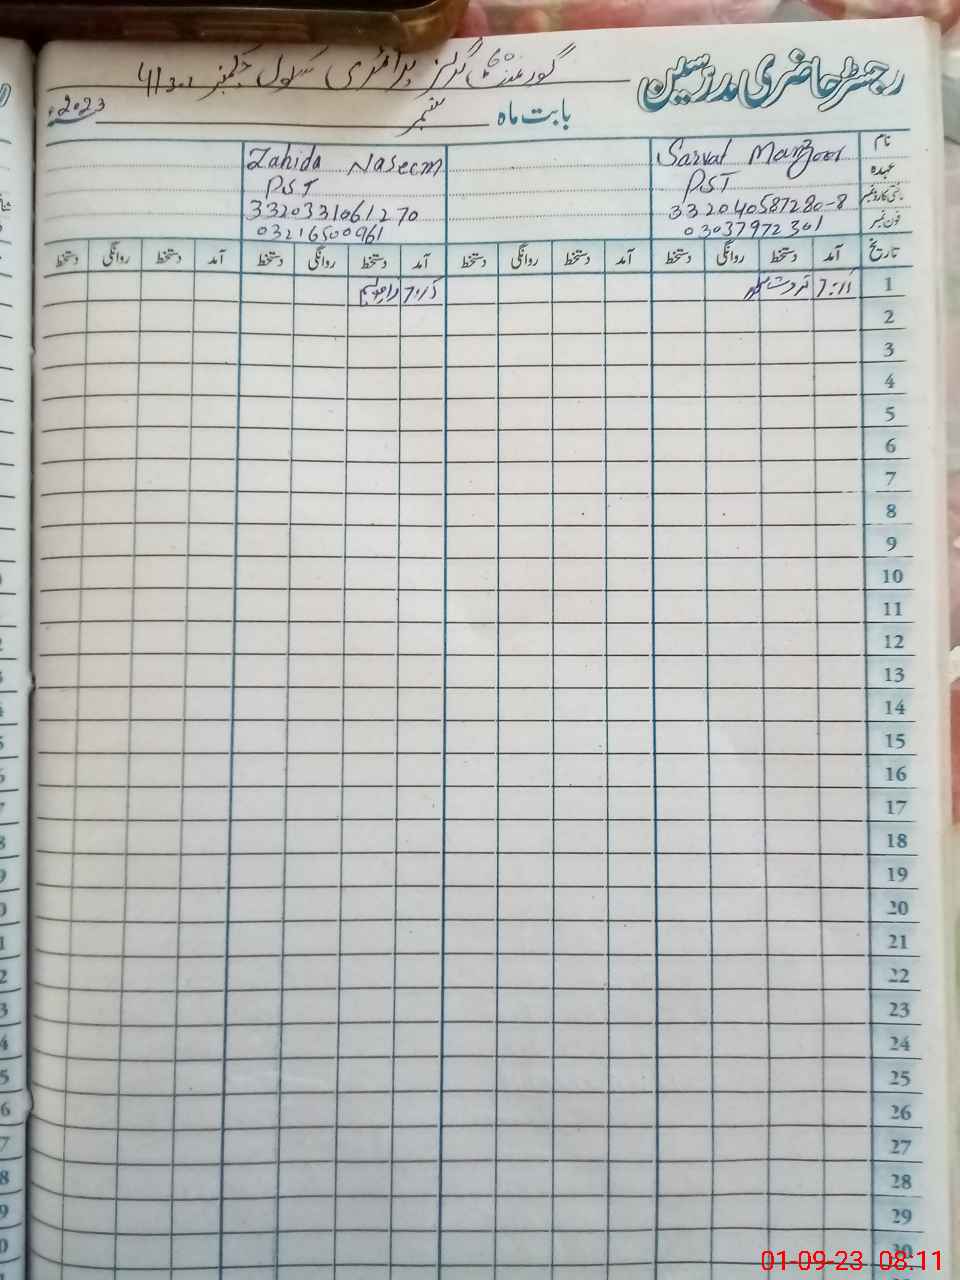 رجسٹر حاضری مدرسین
گورنمنٹ گرلز پرائمری سکول چکنمبر
بابت ماہ ستمبر 2023ء
نام Sarvat Manzoor Zahida Naseem
عہدہ PST PST
332040587280-8 3320331061270
فون نمبر 03037972301 03216500961
تاریخ آمد دستخط روانگی دستخط آمد دستخط روانگی دستخط آمد دستخط روانگی دستخط آمد دستخط روانگی دستخط
1
2
3
4
5
6
7
8
9
10
11
12
13
14
15
16
17
18
19
20
21
22
23
24
25
26
27
28
29
30
01-09-23 08:11